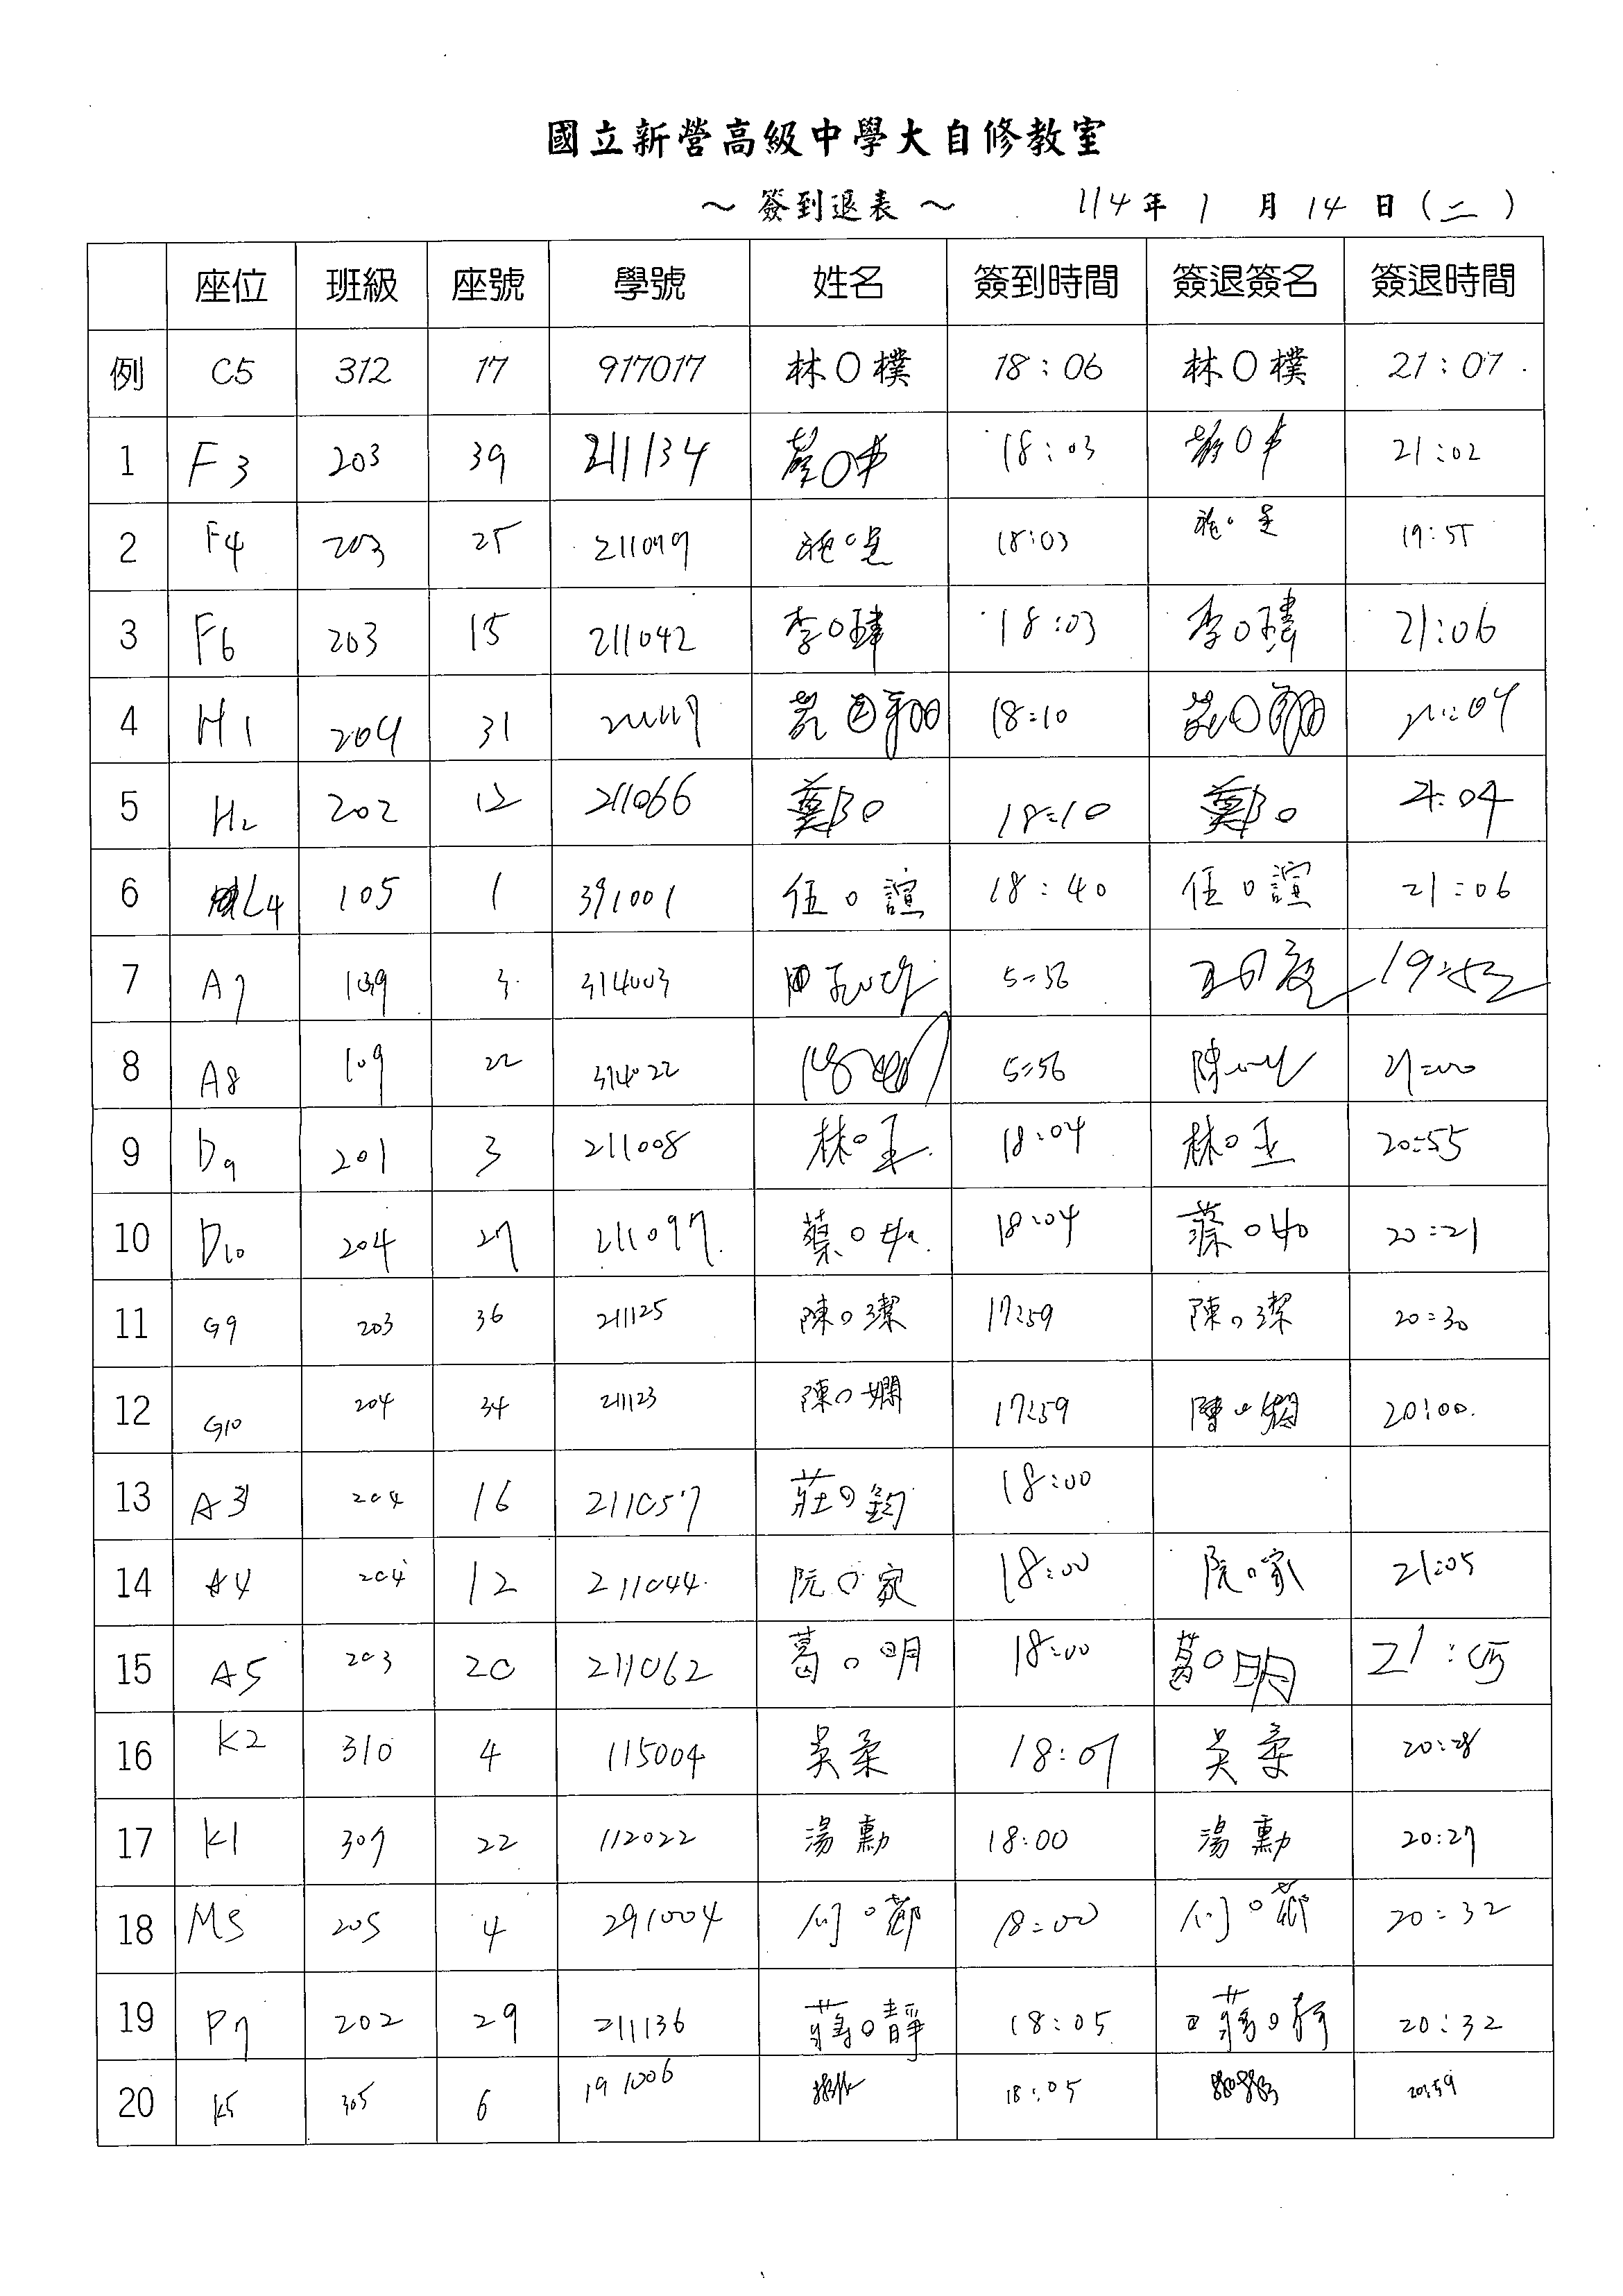 國立新營高級中學大自修教室
～ 簽到退表 ～ 114 年 1 月 14 日 (二)
座位 班級 座號 學號 姓名 簽到時間 簽退簽名 簽退時間
例 C5 312 17 917017 林○樸 18:06 林○樸 21:07
1 F3 203 39 211134 18:03 21:02
2 F4 203 25 211099 施○ 18:03 施○ 19:55
3 F6 203 15 211042 李○瑋 18:03 李○瑋 21:06
4 H1 204 31 18:10
5 H2 202 12 211066 鄭○ 18:10 鄭○ 21:04
6 L4 105 1 391001 伍○諠 18:40 伍○諠 21:06
7 A7 109 3 314003 5:56 19:53
8 A8 109 22 314022 5:56 陳 21:00
9 D9 201 3 211008 林○ 18:04 林○ 20:55
10 D10 204 27 211097 蔡○ 18:04 蔡○ 20:21
11 G9 203 36 211125 陳○潔 17:59 陳○潔 20:30
12 G10 204 34 211123 陳○嫻 17:59 陳○嫻 20:00
13 A3 204 16 211057 莊○鈞 18:00
14 A4 204 12 211044 阮○家 18:00 阮○家 21:05
15 A5 203 20 211062 葛○明 18:00 葛○明 21:05
16 K2 310 4 115004 吳柔 18:07 吳柔 20:28
17 K1 307 22 112022 湯勳 18:00 湯勳 20:27
18 M5 205 4 291004 何○ 18:00 何○ 20:32
19 P7 202 29 211136 蔣○靜 18:05 蔣○靜 20:32
20 K5 305 6 191006 18:05 20:59